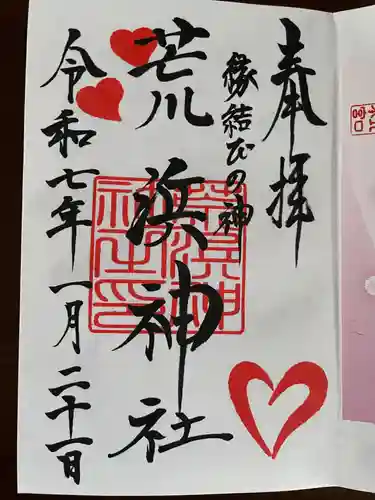 奉拝
縁結びの神
荒川浜神社
令和七年一月二十一日